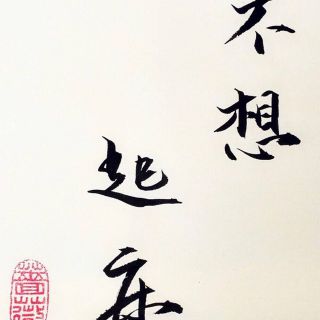 不想
起床